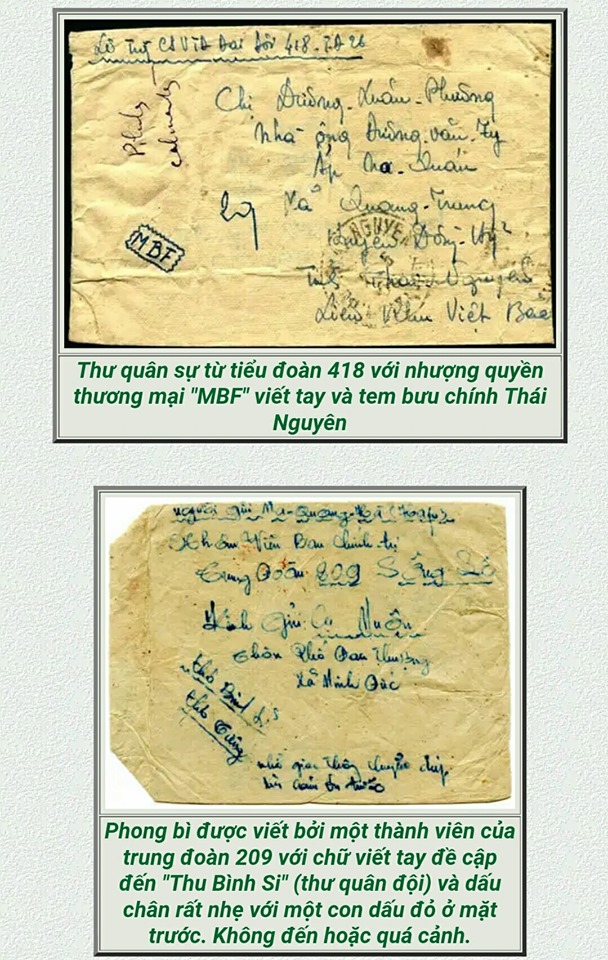 418
Chị Đường-Xuân-Phương
Nhà ông Đường-văn-Ty
Ấp Na-Quán
Xã Quang-Trung
Huyện Đồng-Hỷ
Tỉnh Thái-Nguyên
Liên Khu Việt Bắc
MBF
NGUYE
Thư quân sự từ tiểu đoàn 418 với nhượng quyền
thương mại "MBF" viết tay và tem bưu chính Thái
Nguyên
người gửi Ma-Quang
Nhân Viên Ban Chính trị
Trung Đoàn 209 Sông Lô
Kính gửi Cụ Muôn
Thôn Phố Oan Thượng
Xã Minh Đức
Thơ Bình Sĩ
nhờ giao thông chuyển
Phong bì được viết bởi một thành viên của
trung đoàn 209 với chữ viết tay đề cập
đến "Thu Bình Si" (thư quân đội) và dấu
chân rất nhẹ với một con dấu đỏ ở mặt
trước. Không đến hoặc quá cảnh.